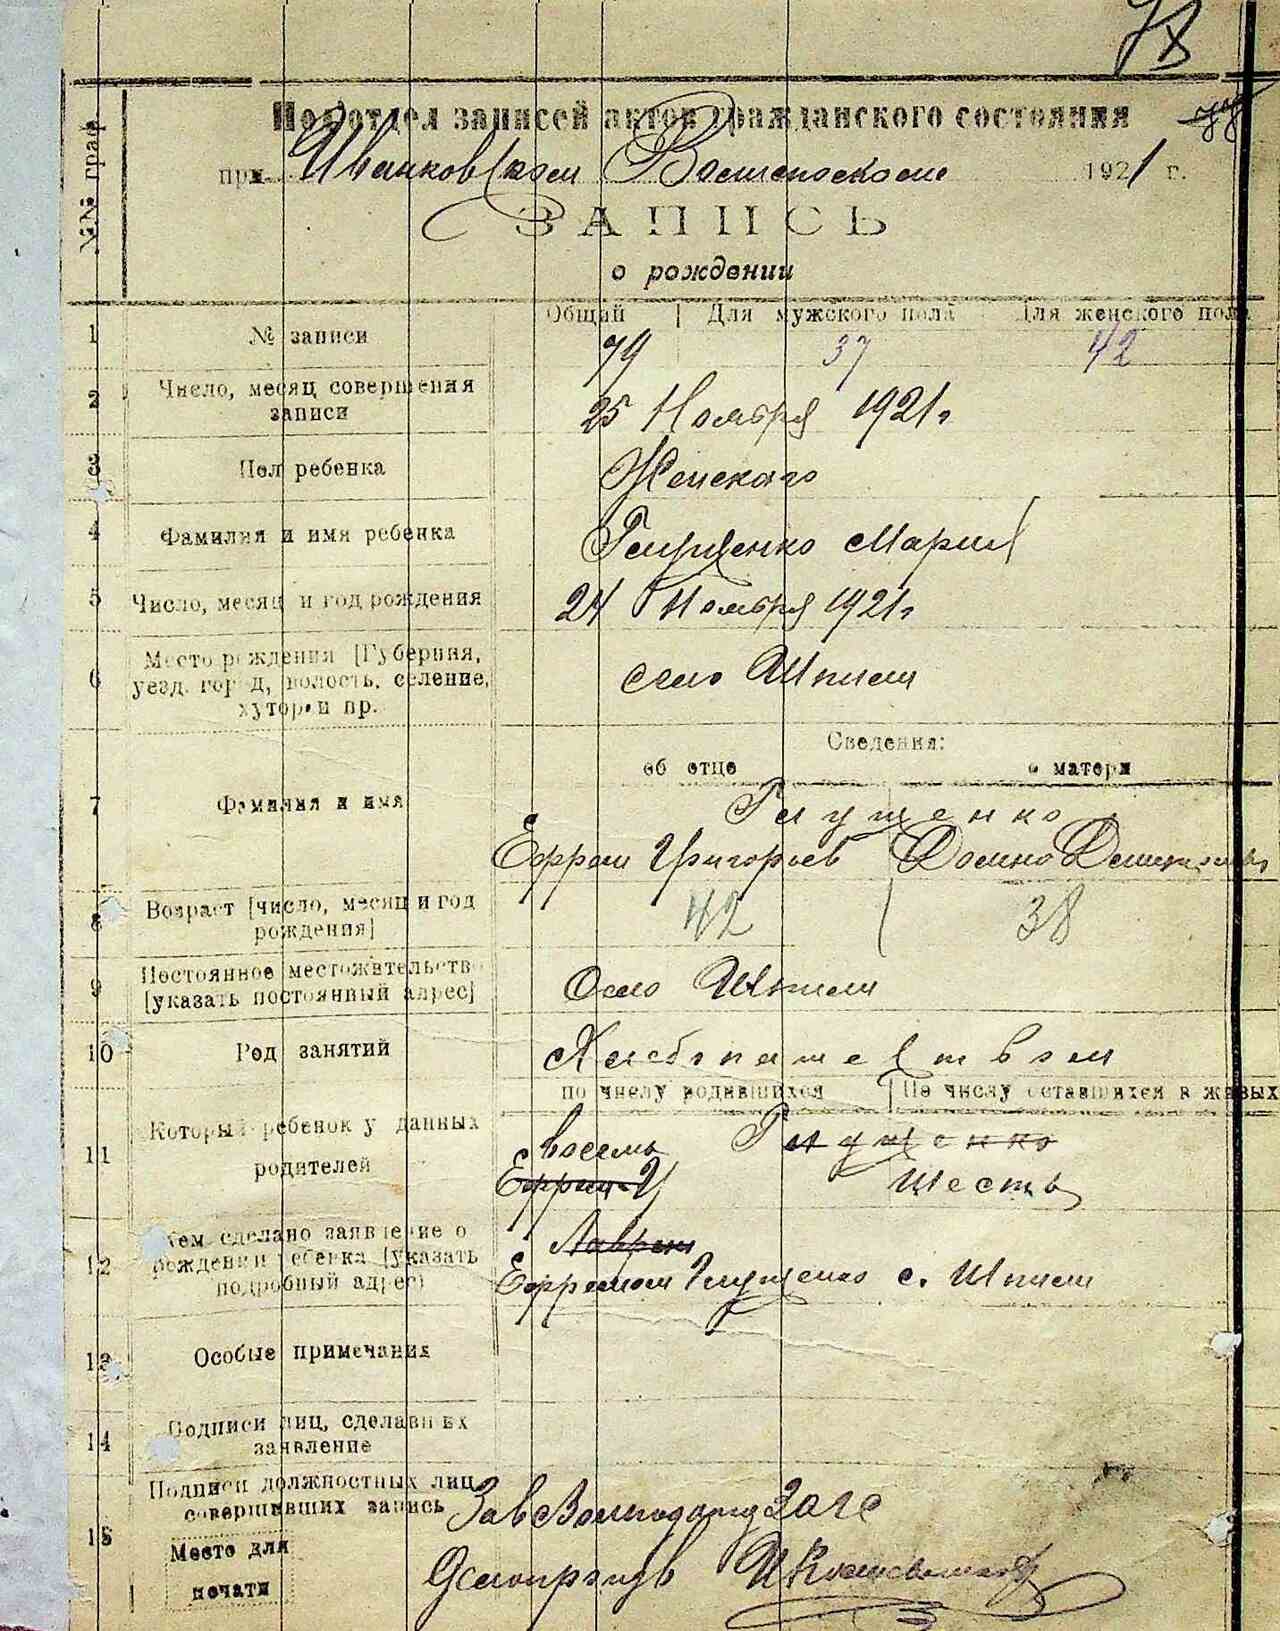 78
Подотдел записей актов гражданского состояния
при Иванковском Волисполкоме 1921 г.
№№ граф
ЗАПИСЬ
о рождении
Общий Для мужского пола Для женского пола
1 № записи 79 37 42
2 Число, месяц совершения
записи
25 Ноября 1921 г
3 Пол ребенка Женскаго
4 Фамилия и имя ребенка Глущенко Мария
5 Число, месяц и год рождения 24 Ноября 1921 г
6 Место рождения [Губерния,
уезд, город, волость, селение,
хутор и пр.
село Шпили
Сведения:
об отце о матери
7 Фамилия и имя Глущенко
Ефрем Григорьев Домно
8 Возраст [число, месяц и год
рождения]
42 38
9 Постоянное местожительство
[указать постоянный адрес]
Село Шпили
10 Род занятий Хлебопашеством
по числу родившихся По числу оставшихся в живых
11 Который ребенок у данных
родителей
восемь Глущенко
Ефрем Г шесть
12 Кем сделано заявление о
рождении ребенка [указать
подробный адрес]
Ефремом Глущенко с. Шпили
13 Особые примечания
14 Подписи лиц, сделавших
заявление
15 Подписи должностных лиц
совершивших запись
Зав Волподотд Загс
Место для
печати
Делопроизв